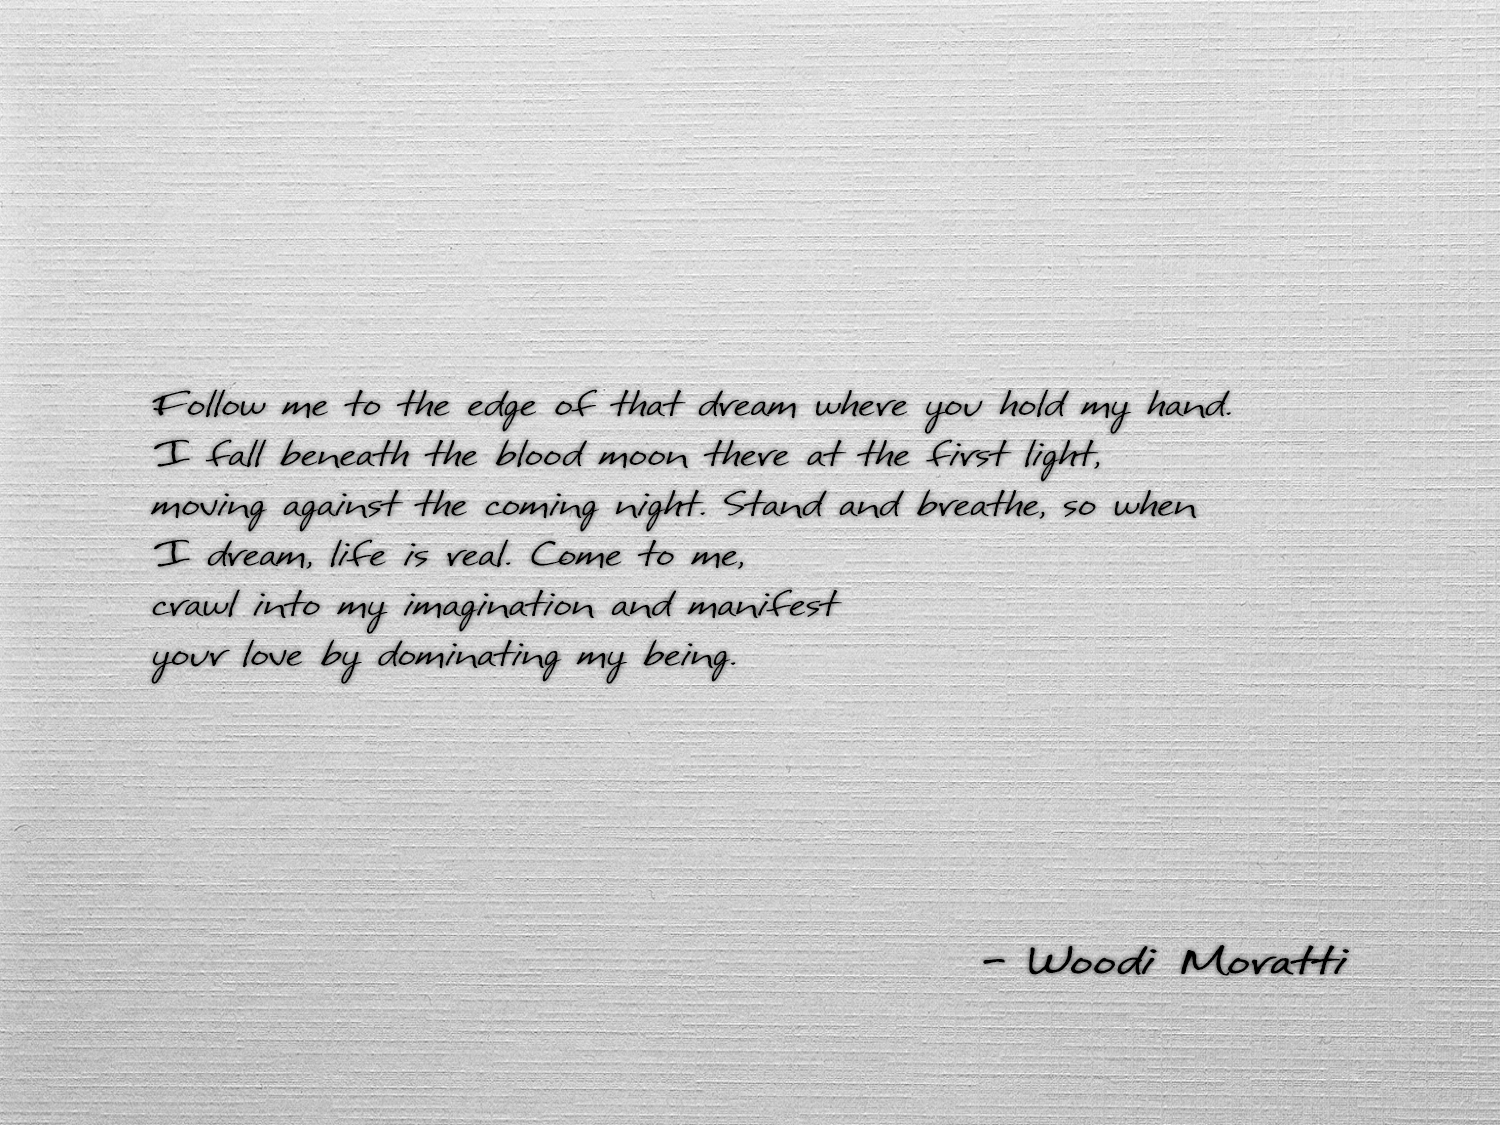 Follow me to the edge of that dream where you hold my hand.
I fall beneath the blood moon there at the first light,
moving against the coming night. Stand and breathe, so when
I dream, life is real. Come to me,
crawl into my imagination and manifest
your love by dominating my being.
- Woodi Moratti